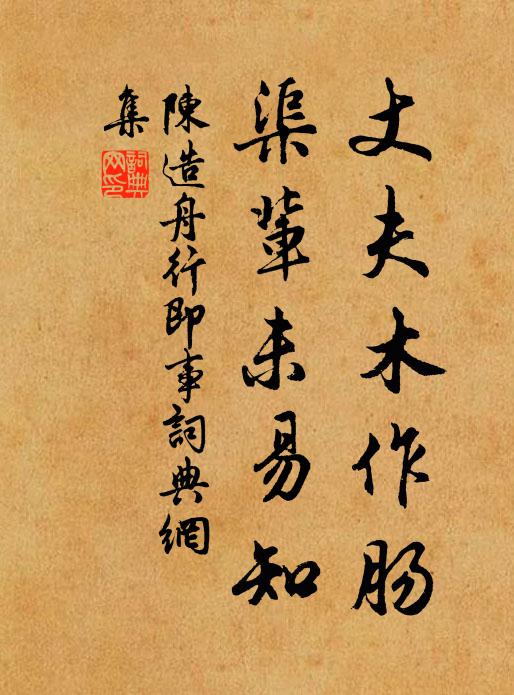 丈夫木作腸
渠輩未易知
陳造舟行即事詞典網
集
詞典
网印